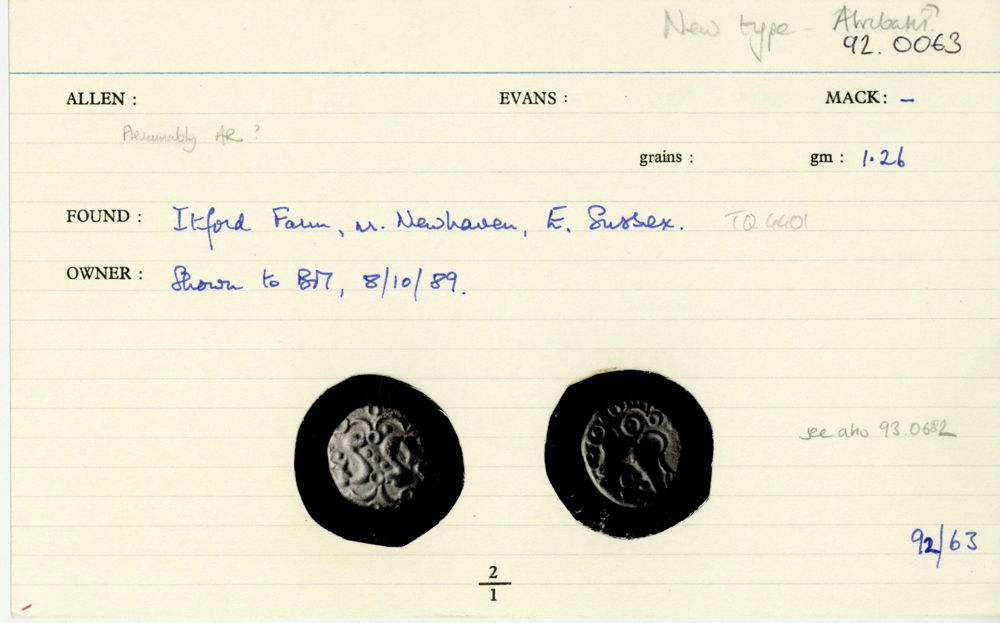 New type - Atrebatic?
92. 0063
ALLEN : EVANS : MACK: –
Presumably AR ?
grains : gm : 1.26
FOUND : Itford Farm, nr. Newhaven, E. Sussex. TQ 4401
OWNER : Shown to BM, 8/10/89.
see also 93.0682
92/63
2
1